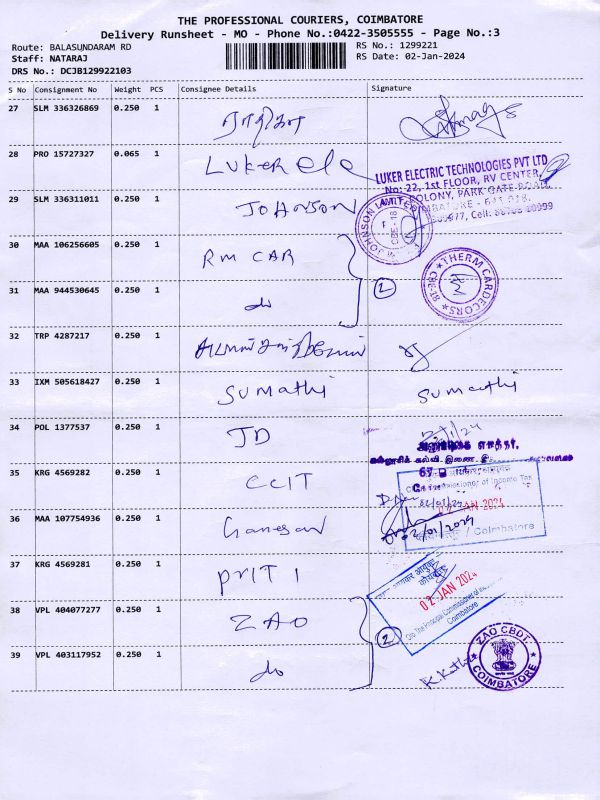 THE PROFESSIONAL COURIERS, COIMBATORE
Delivery Runsheet - MO - Phone No.:0422-3505555 - Page No.:3
Route: BALASUNDARAM RD
RS No.: 1299221
Staff: NATARAJ
RS Date: 02-Jan-2024
DRS No.: DCJB129922103
S No Consignment No Weight PCS Consignee Details Signature
27 SLM 336326869 0.250 1
28 PRO 15727327 0.065 1 LUKER ele
LUKER ELECTRIC TECHNOLOGIES PVT LTD
No: 22, 1st FLOOR, RV CENTER,
COLONY, PARK GATE ROAD
COIMBATORE - 641 018.
29 SLM 336311011 0.250 1 JOHNSON
30 MAA 106256605 0.250 1 RM CAR
THERM CARDECORS
CBE-18
31 MAA 944530645 0.250 1 do 2
32 TRP 4287217 0.250 1
33 IXM 505618427 0.250 1 Sumathi Sumathi
34 POL 1377537 0.250 1 JD
35 KRG 4569282 0.250 1 CCIT
Commissioner of Income Tax
02 JAN 2024
02/01/2024
/ Coimbatore
36 MAA 107754936 0.250 1 Ganesan
37 KRG 4569281 0.250 1 PRIT 1
02 JAN 2024
O/o The Principal Commissioner of
Coimbatore
38 VPL 404077277 0.250 1 ZAO 2
ZAO CBDT
COIMBATORE
39 VPL 403117952 0.250 1 do